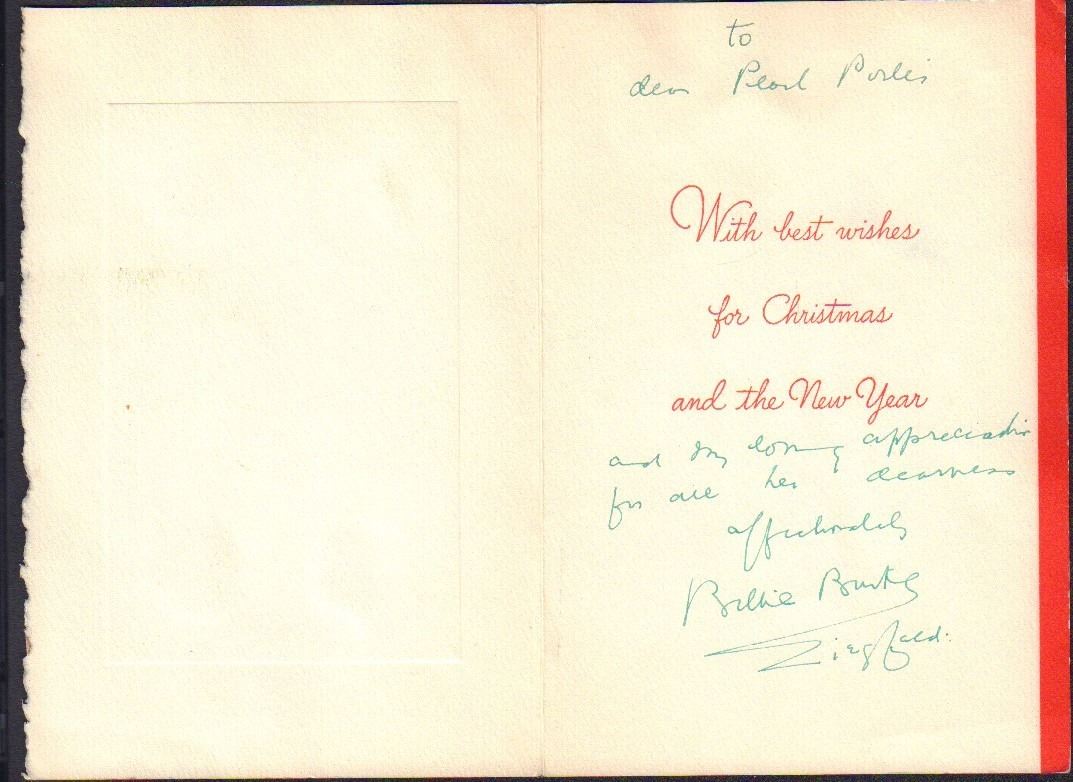 to
dear Pearl
With best wishes
for Christmas
and the New Year
and my loving appreciation
for all her dearness
affectionately
Billie Burke
Ziegfeld.